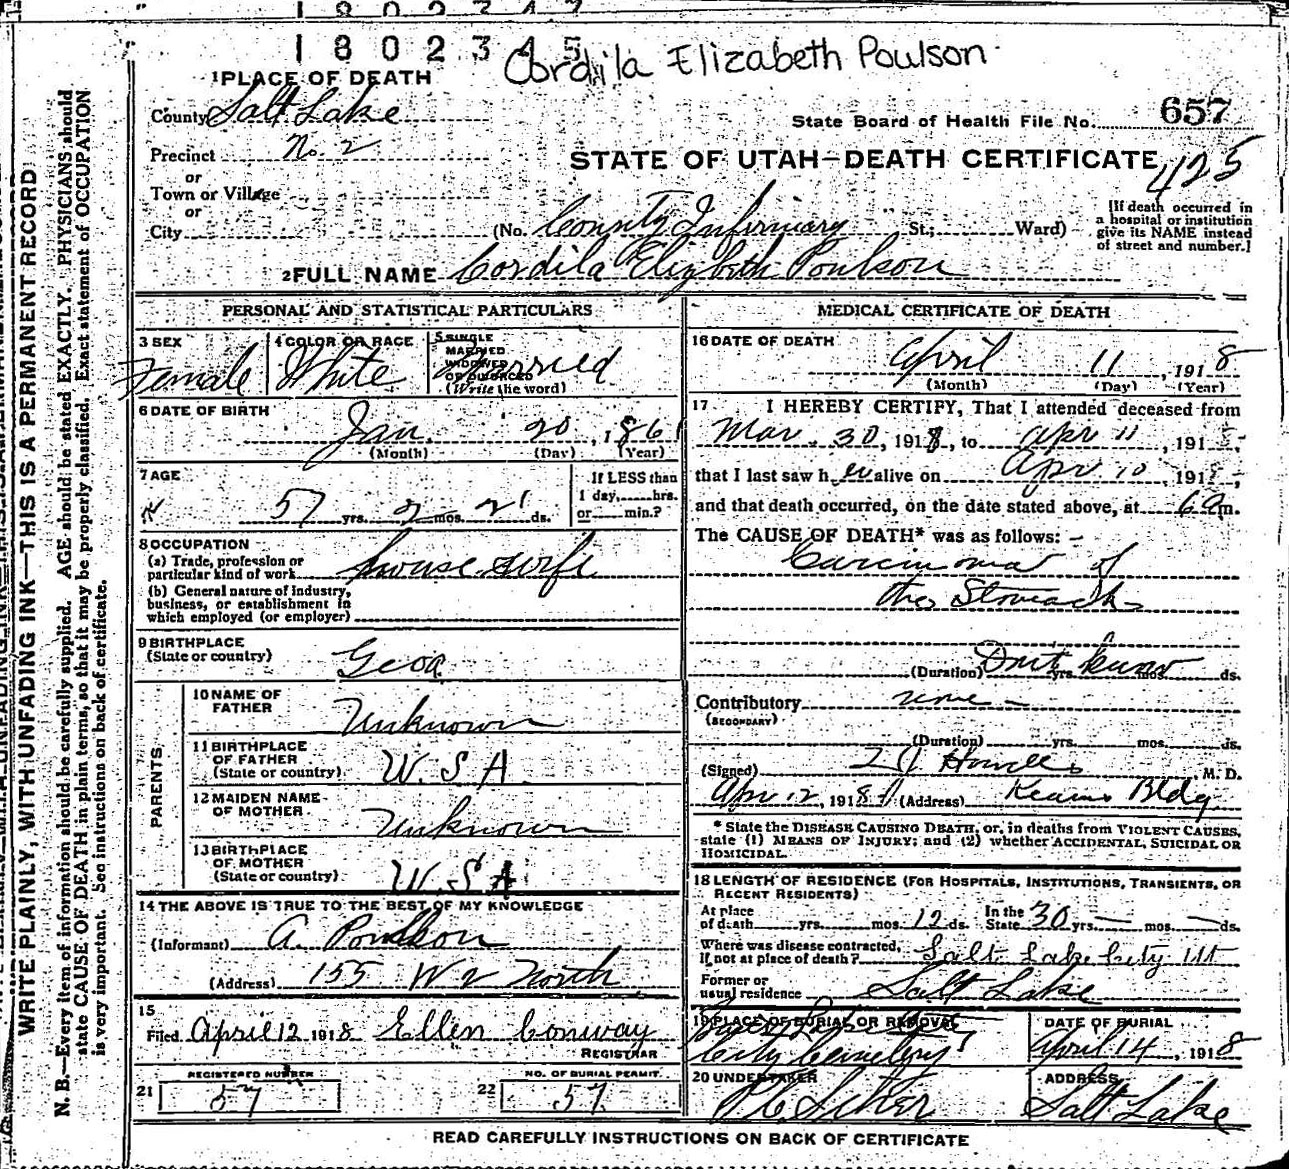 1802345
Cordila Elizabeth Poulson
1 PLACE OF DEATH
County Salt Lake
State Board of Health File No. 657
Precinct No. 2
or
STATE OF UTAH—DEATH CERTIFICATE
425
Town or Village
or
City (No. County Infirmary St.; Ward)
[If death occurred in
a hospital or institution
give its NAME instead
of street and number.]
2 FULL NAME Cordila Elizbeth Poulson
PERSONAL AND STATISTICAL PARTICULARS
3 SEX
Female
4 COLOR OR RACE
White
5 SINGLE
MARRIED
WIDOWED
OR DIVORCED
(Write the word)
Married
6 DATE OF BIRTH
Jan. 20, 1861
(Month) (Day) (Year)
7 AGE
57 yrs. 2 mos. 21 ds.
If LESS than
1 day, hrs.
or min.?
8 OCCUPATION
(a) Trade, profession or
particular kind of work housewife
(b) General nature of industry,
business, or establishment in
which employed (or employer)
9 BIRTHPLACE
(State or country) Geoa
PARENTS
10 NAME OF
FATHER Unknown
11 BIRTHPLACE
OF FATHER
(State or country) U. S A.
12 MAIDEN NAME
OF MOTHER Unknown
13 BIRTHPLACE
OF MOTHER
(State or country) U. S A.
14 THE ABOVE IS TRUE TO THE BEST OF MY KNOWLEDGE
(Informant) A. Poulson
(Address) 155 W 2 North
15
Filed April 12 1918 Ellen Conway
REGISTRAR
REGISTERED NUMBER
21 57
NO. OF BURIAL PERMIT
22 57
MEDICAL CERTIFICATE OF DEATH
16 DATE OF DEATH
April 11, 1918
(Month) (Day) (Year)
17 I HEREBY CERTIFY, That I attended deceased from
Mar. 30, 1918, to Apr 11, 191
that I last saw her alive on Apr 10 191
and that death occurred, on the date stated above, at 6 a m.
The CAUSE OF DEATH* was as follows:
Carcinoma of
the Stomach
(Duration) Dont know yrs. mos. ds.
Contributory none
(SECONDARY)
(Duration) yrs. mos. ds.
(Signed) Howells M. D.
Apr 12, 1918 (Address) Kearns Bldg
* State the DISEASE CAUSING DEATH, or, in deaths from VIOLENT CAUSES,
state (1) MEANS OF INJURY; and (2) whether ACCIDENTAL, SUICIDAL OR
HOMICIDAL.
18 LENGTH OF RESIDENCE (FOR HOSPITALS, INSTITUTIONS, TRANSIENTS, OR
RECENT RESIDENTS)
At place
of death yrs. mos. 12 ds.
In the
State 30 yrs. — mos. — ds.
Where was disease contracted,
If not at place of death? Salt Lake City Ut
Former or
usual residence Salt Lake
19 PLACE OF BURIAL OR REMOVAL
City Cemetery
DATE OF BURIAL
April 14, 1918
20 UNDERTAKER
ADDRESS
Salt Lake
READ CAREFULLY INSTRUCTIONS ON BACK OF CERTIFICATE
WRITE PLAINLY, WITH UNFADING INK—THIS IS A PERMANENT RECORD
N. B.—Every item of information should be carefully supplied. AGE should be stated EXACTLY. PHYSICIANS should
state CAUSE OF DEATH in plain terms, so that it may be properly classified. Exact statement of OCCUPATION
is very important. See instructions on back of certificate.